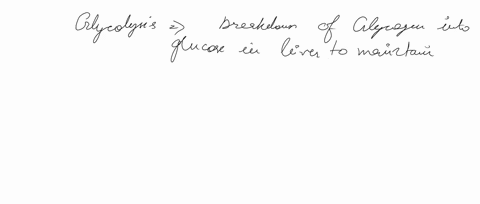 Glycolysis => Breakdown of Glycogen into
glucose in liver to maintain